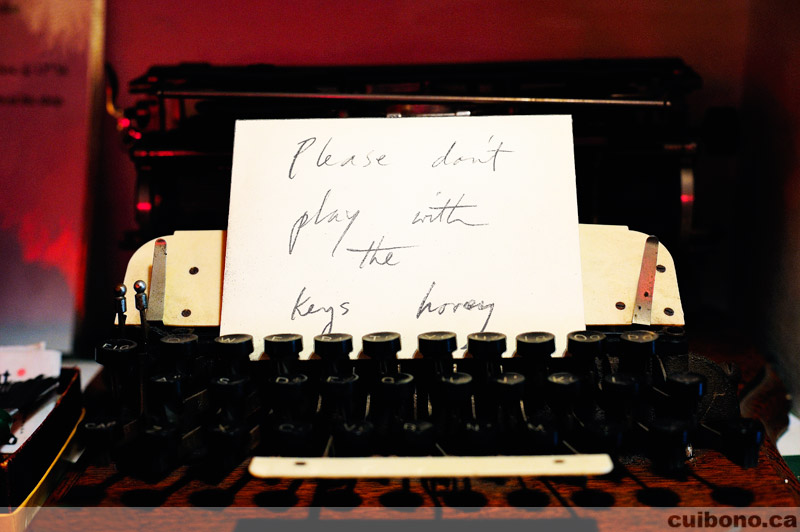 Please don't
play with
the
keys
cuibono.ca